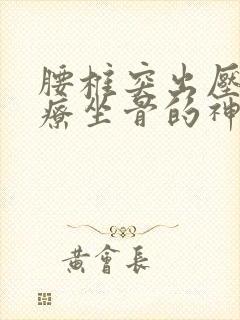 腰椎突出壓
療坐骨的神
黃會長